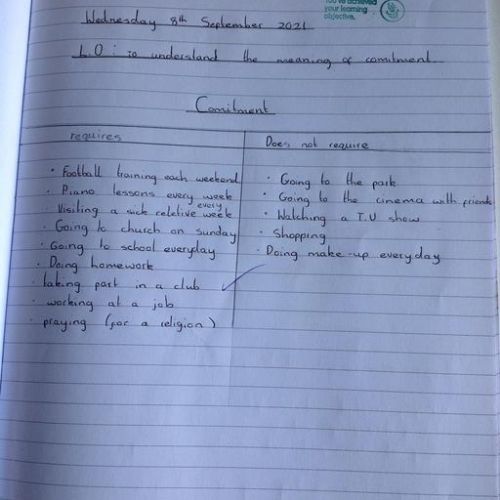 You've achieved
your learning
objective.
Wednesday 8th September 2021
L.O: to understand the meaning of comitment
Comitment
requires
· Football training each weekend
· Piano lessons every week
· Visiting a sick reletive every week
· Going to church on sunday
· Going to school everyday
· Doing homework
· taking part in a club
· working at a job
· praying (for a religion)
Does not require
· Going to the park
· Going to the cinema with friends
· Watching a T.V show
· Shopping
· Doing make-up everyday